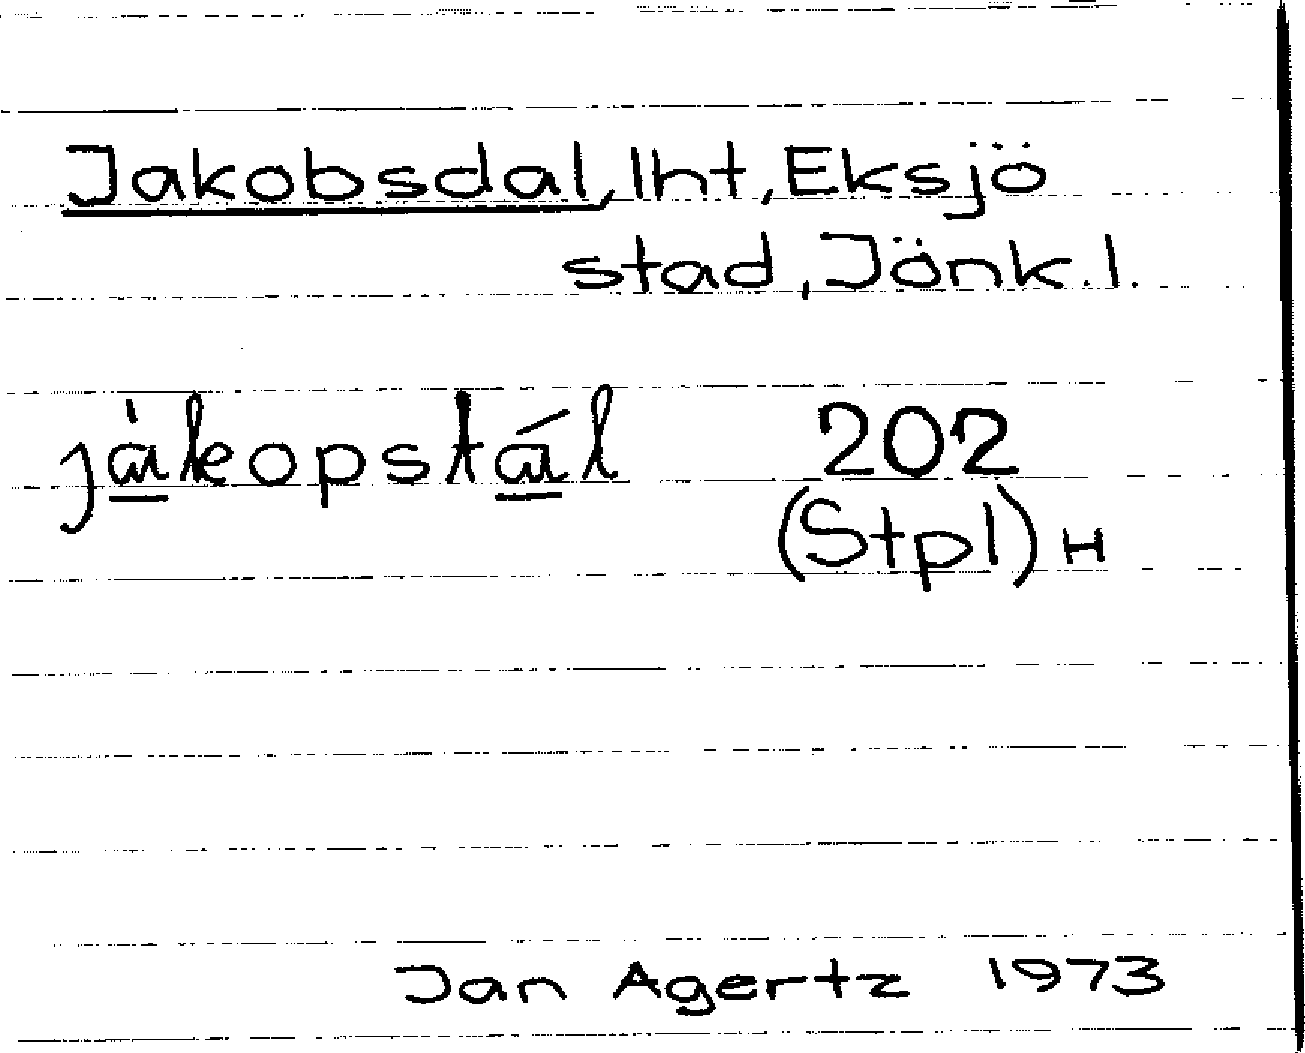 Jakobsdal, lht, Eksjö
stad, Jönk.l.
jàkopstál 202
(Stpl) H
Jan Agertz 1973